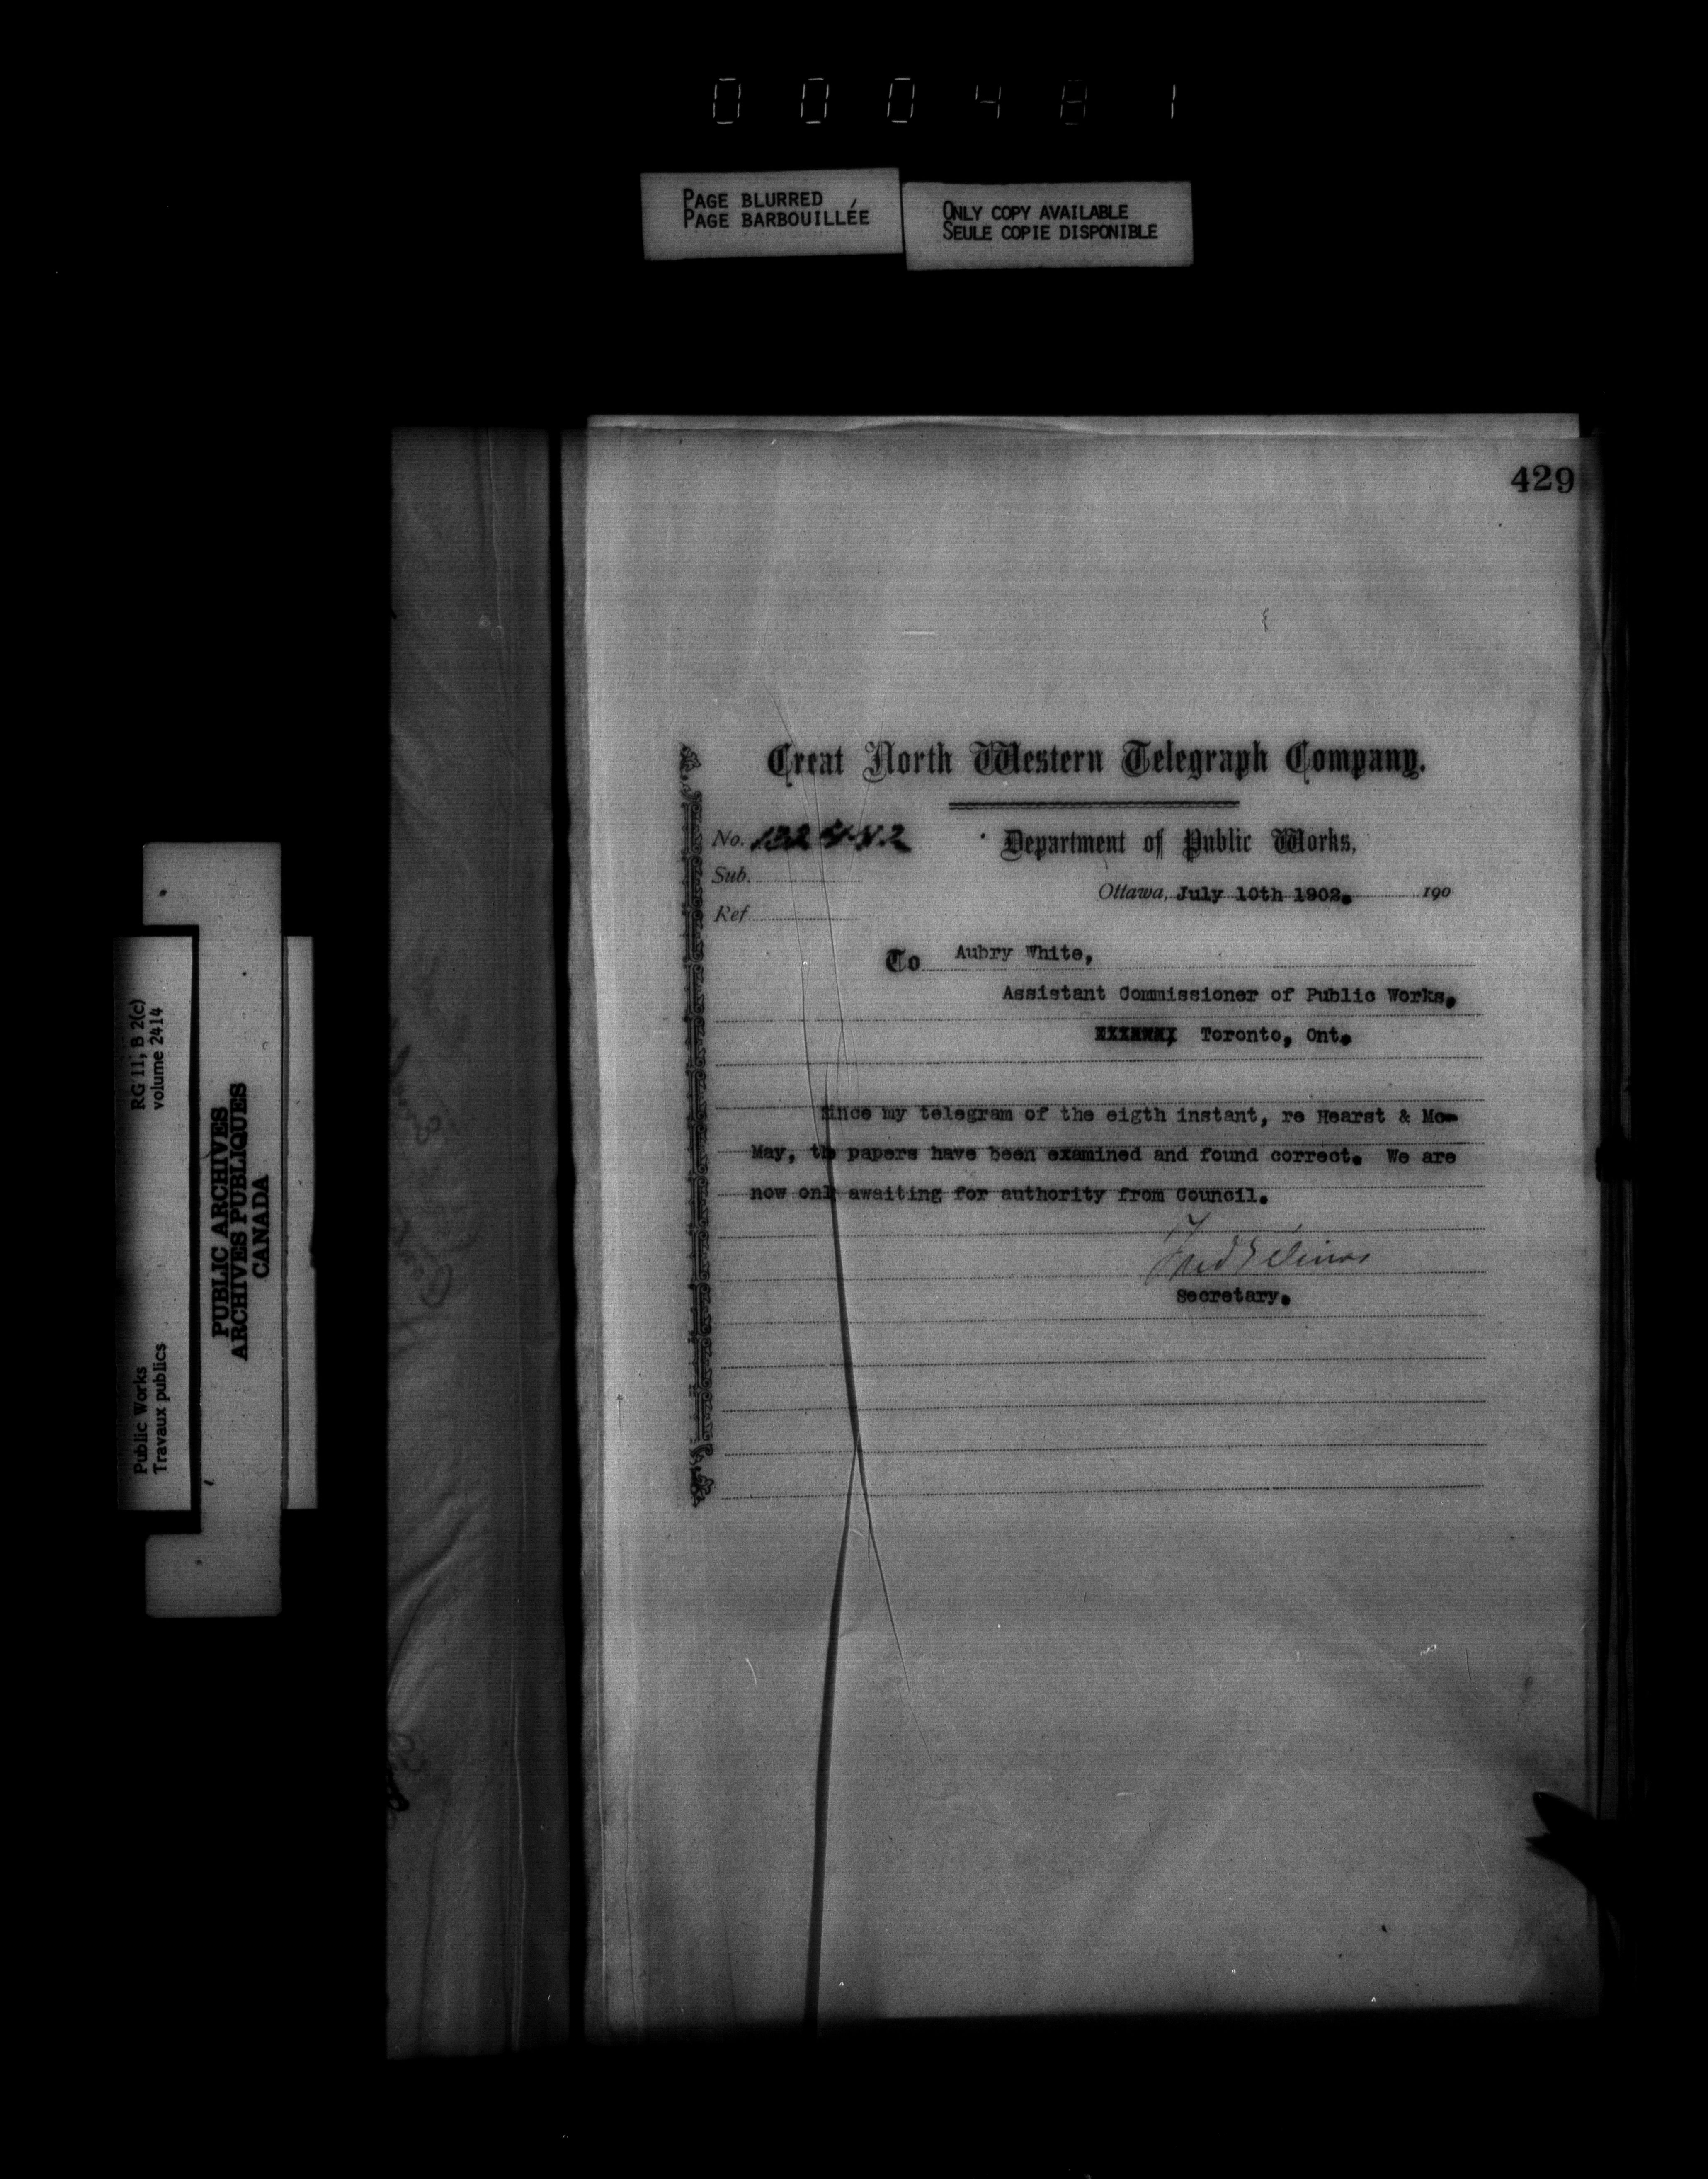 000481
PAGE BLURRED
PAGE BARBOUILLÉE
ONLY COPY AVAILABLE
SEULE COPIE DISPONIBLE
RG 11, B 2(c)
volume 2414
Public Works
Travaux publics
PUBLIC ARCHIVES
ARCHIVES PUBLIQUES
CANADA
429
Great North Western Telegraph Company.
No. 132442
Department of Public Works,
Sub.
Ottawa, July 10th 1902. 190
Ref
To Aubry White,
Assistant Commissioner of Public Works.
Toronto, Ont.
Since my telegram of the eigth instant, re Hearst & Mc-
May, the papers have been examined and found correct. We are
now only awaiting for authority from Council.
Fred Gélinas
Secretary.